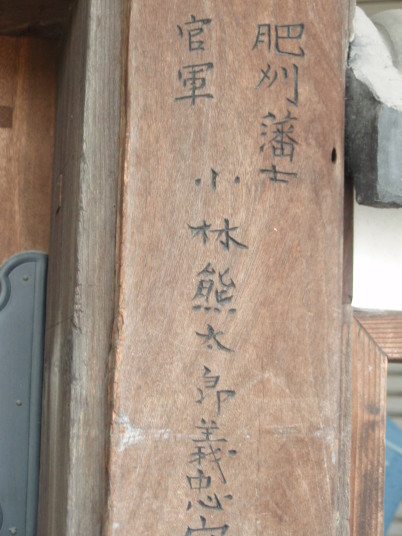 肥刈藩士
官軍 小林熊太郎義忠